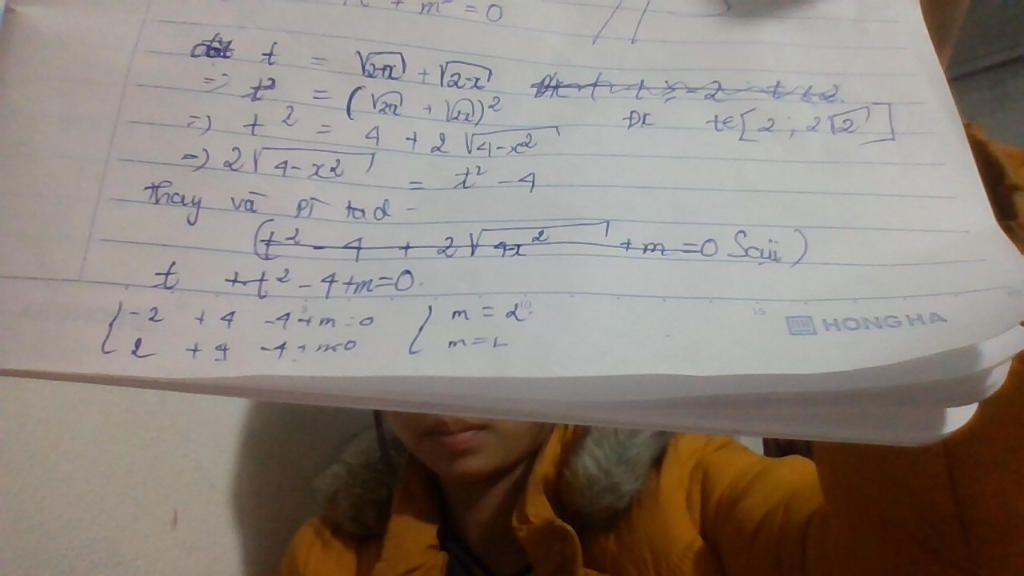 + m = 0
t = √2+x + √2-x
=> t² = (√2x + √2x)²
=> t² = 4 + 2√4-x² ĐK t∈[2; 2√2]
=> 2√4-x² = t² - 4
Thay và PT ta đ
(t² - 4 + 2√4x² + m = 0 Sai)
t + t² - 4 + m = 0
-2 + 4 - 4 + m = 0 m = 2
2 + 4 - 4 + m=0 m =
HONG HA